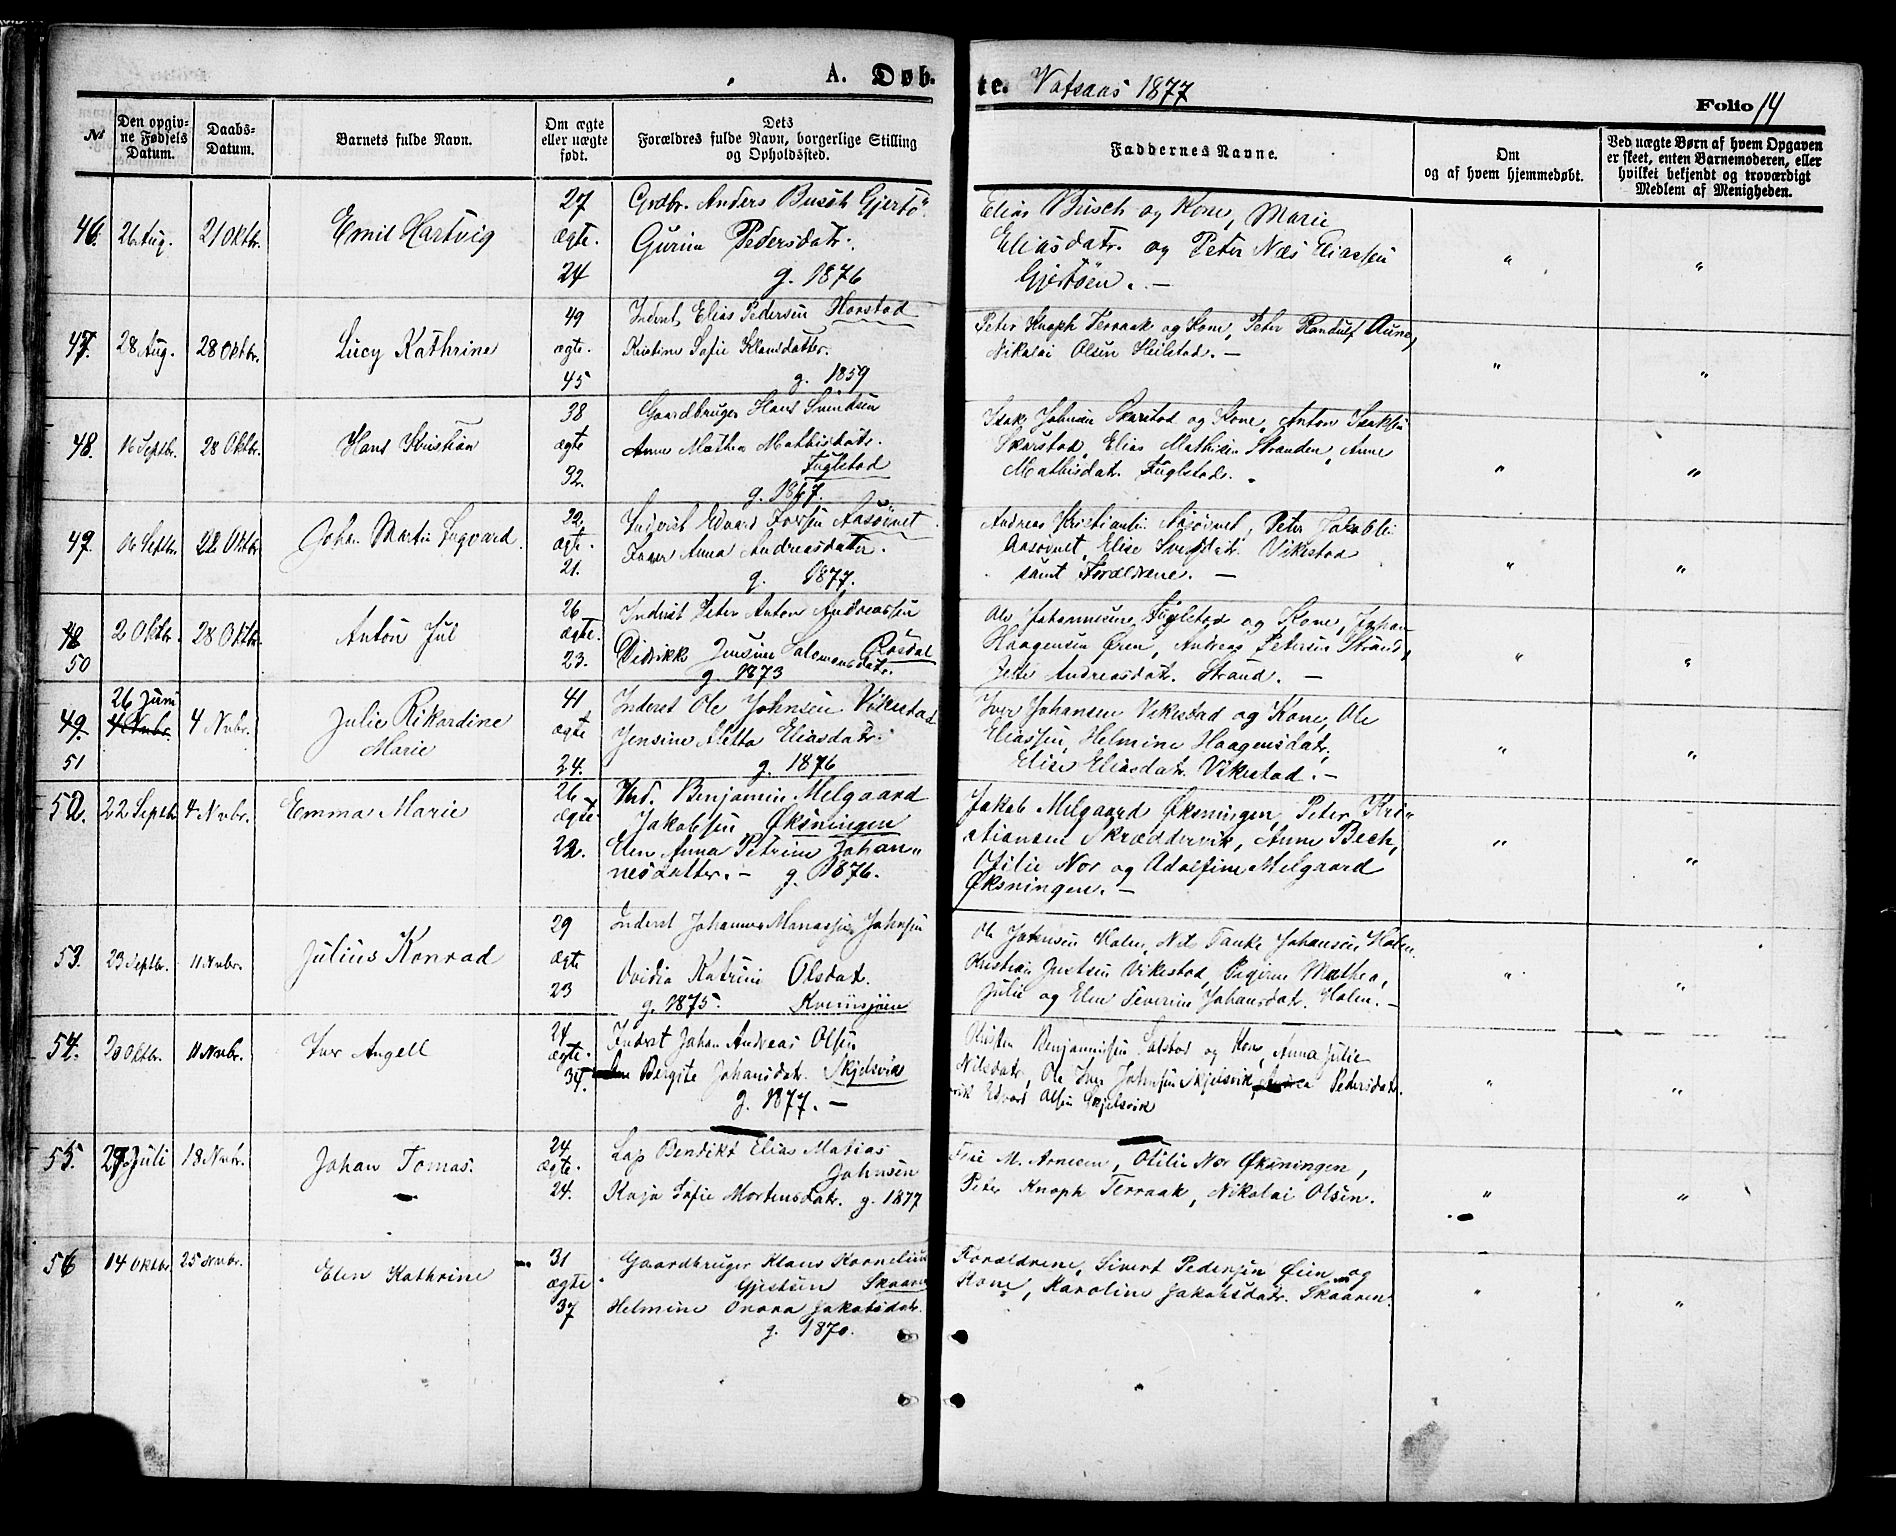 A. Døb-
te. Vatsaas 1877
Folio 14
No
Den opgiv-
ne Fødsels
Datum.
Daabs-
Datum.
Barnets fulde Navn.
Om ægte
eller uægte
født.
Dets
Forældres fulde Navn, borgerlige Stilling
og Opholdssted.
Faddernes Navne.
Om
og af hvem hjemmedøbt.
Ved uægte Børn af hvem Opgaven
er skeet, enten Barnemoderen, eller
hvilket bekjendt og troværdigt
Medlem af Menigheden.
46. 26 Aug. 21 Oktbr. Emil Hartvig
27 ægte. 24
Grdbr. Anders Busch Gjertö
Gurina Pedersdatr.
g. 1876
Elias Busch og Kone, Marie
Eliasdatr. og Peter Næs Eliassen
Gjertöen. —
47. 28 Aug. 28 Oktbr. Lucy Kathrine
49 ægte. 45
Inderst Elias Pedersen Horstad
Kristine Sofie Klausdatter.
g. 1859
Peter Knoph Terraak og Kone, Peter Randulf Aune,
Nikolai Olsen Heilstad. —
48. 16 Septbr. 28 Oktbr. Hans Kristian
38 ægte 32.
Gaardbruger Hans Svendsen
Anne Mathea Mathisdatr.
Fuglstad
g. 1867.
Isak Johnsen Skarstad og Kone, Anton Isaksen
Skarstad, Elias Mathisen Stranden, Anne
Mathisdatr. Fuglstad.
49. 06 Septbr. 28 Oktbr. Johan Martin Ingvard.
22. ægte. 21.
Indrst Edvard Aasövnet
Anna Andreasdatter.
g. 1877.
Andreas Kristiansen Aasövnet, Peter
Aasövnet, Elise Vikestad
samt Forældrene. —
48 50 2 Oktbr. 28 Oktbr. Anton Jul
26 ægte. 23.
Inderst Peter Anton Andreassen
Rosdal
Didrikke Jensine Salamonsdatr.
g. 1873
Ole Johannesen Fuglstad og Kone, Johan
Haagensen Øren, Andreas Petersen Strand,
Andreasdatr. Strand. —
49 51 26 Juni 4 Nvbr. 4 Nvbr. Julie Rikardine
Marie
41 ægte 24.
Inderst Ole Johnsen Vikestad
Jensine Metta Eliasdatr.
g. 1876
Iver Johansen Vikestad og Kone, Ole
Eliassen, Helmine Haagensdatr.
Elise Eliasdatr. Vikestad. —
52. 22 Septb. 4 Nvbr. Emma Marie
26 ægte 22.
Ind. Benjamin Melgaard
Jakobsen Øksningen
Elen Anna Petrine Johan-
nesdatter. — g. 1876.
Jakob Melgaard Øksningen, Peter Kri-
stiansen Skræddervik, Anne Bech,
Otilie Nor og Adolfine Melgaard
Øksningen. —
53. 23 Septbr. 11 Nvbr. Julius Konrad
29 ægte 23
Inderst Johannes Manassen Johnsen
Ovidia Katrine Olsdat.
g. 1875. Kveinsjöen
Ole Johnsen Holm, Nils Tanke Johansen Holm
Kristian Justsen Vikestad, Mathea,
Julie og Elen Severine Johansdatr. Holm. —
54. 20 Oktbr. 11 Nvbr. Iver Angell
24 ægte. 34.
Inderst Johan Andreas Olsen
Bergite Johansdatr. Skjelsvik
g. 1877. —
Benjaminsen Salstad og Kone, Anna Julie
Nilsdatr, Ole Iver Johnsen Skjelsvik, Pedersdatr.
Edvard Olsen Skjelsvik
55. 29 Juli 18 Nvbr. Johan Tomas.
24. ægte. 24.
Lap Bendikt Elias Matias
Johnsen
Kaja Sofie Mortensdatr. g. 1877
Frue M. Arnesen, Otilie Nor Øksningen,
Peter Knoph Terraak, Nikolai Olsen.
56 14 Oktbr 25 Nvbr. Elen Kathrine
31 ægte 37
Gaardbruger Klaus Kornelius
Gjertsen Skaaren
Helmine Onora Jakobsdatr.
g. 1870.
Forældrene, Sivert Pedersen Øien og
Kone, Karoline Jakobsdatr. Skaaren.